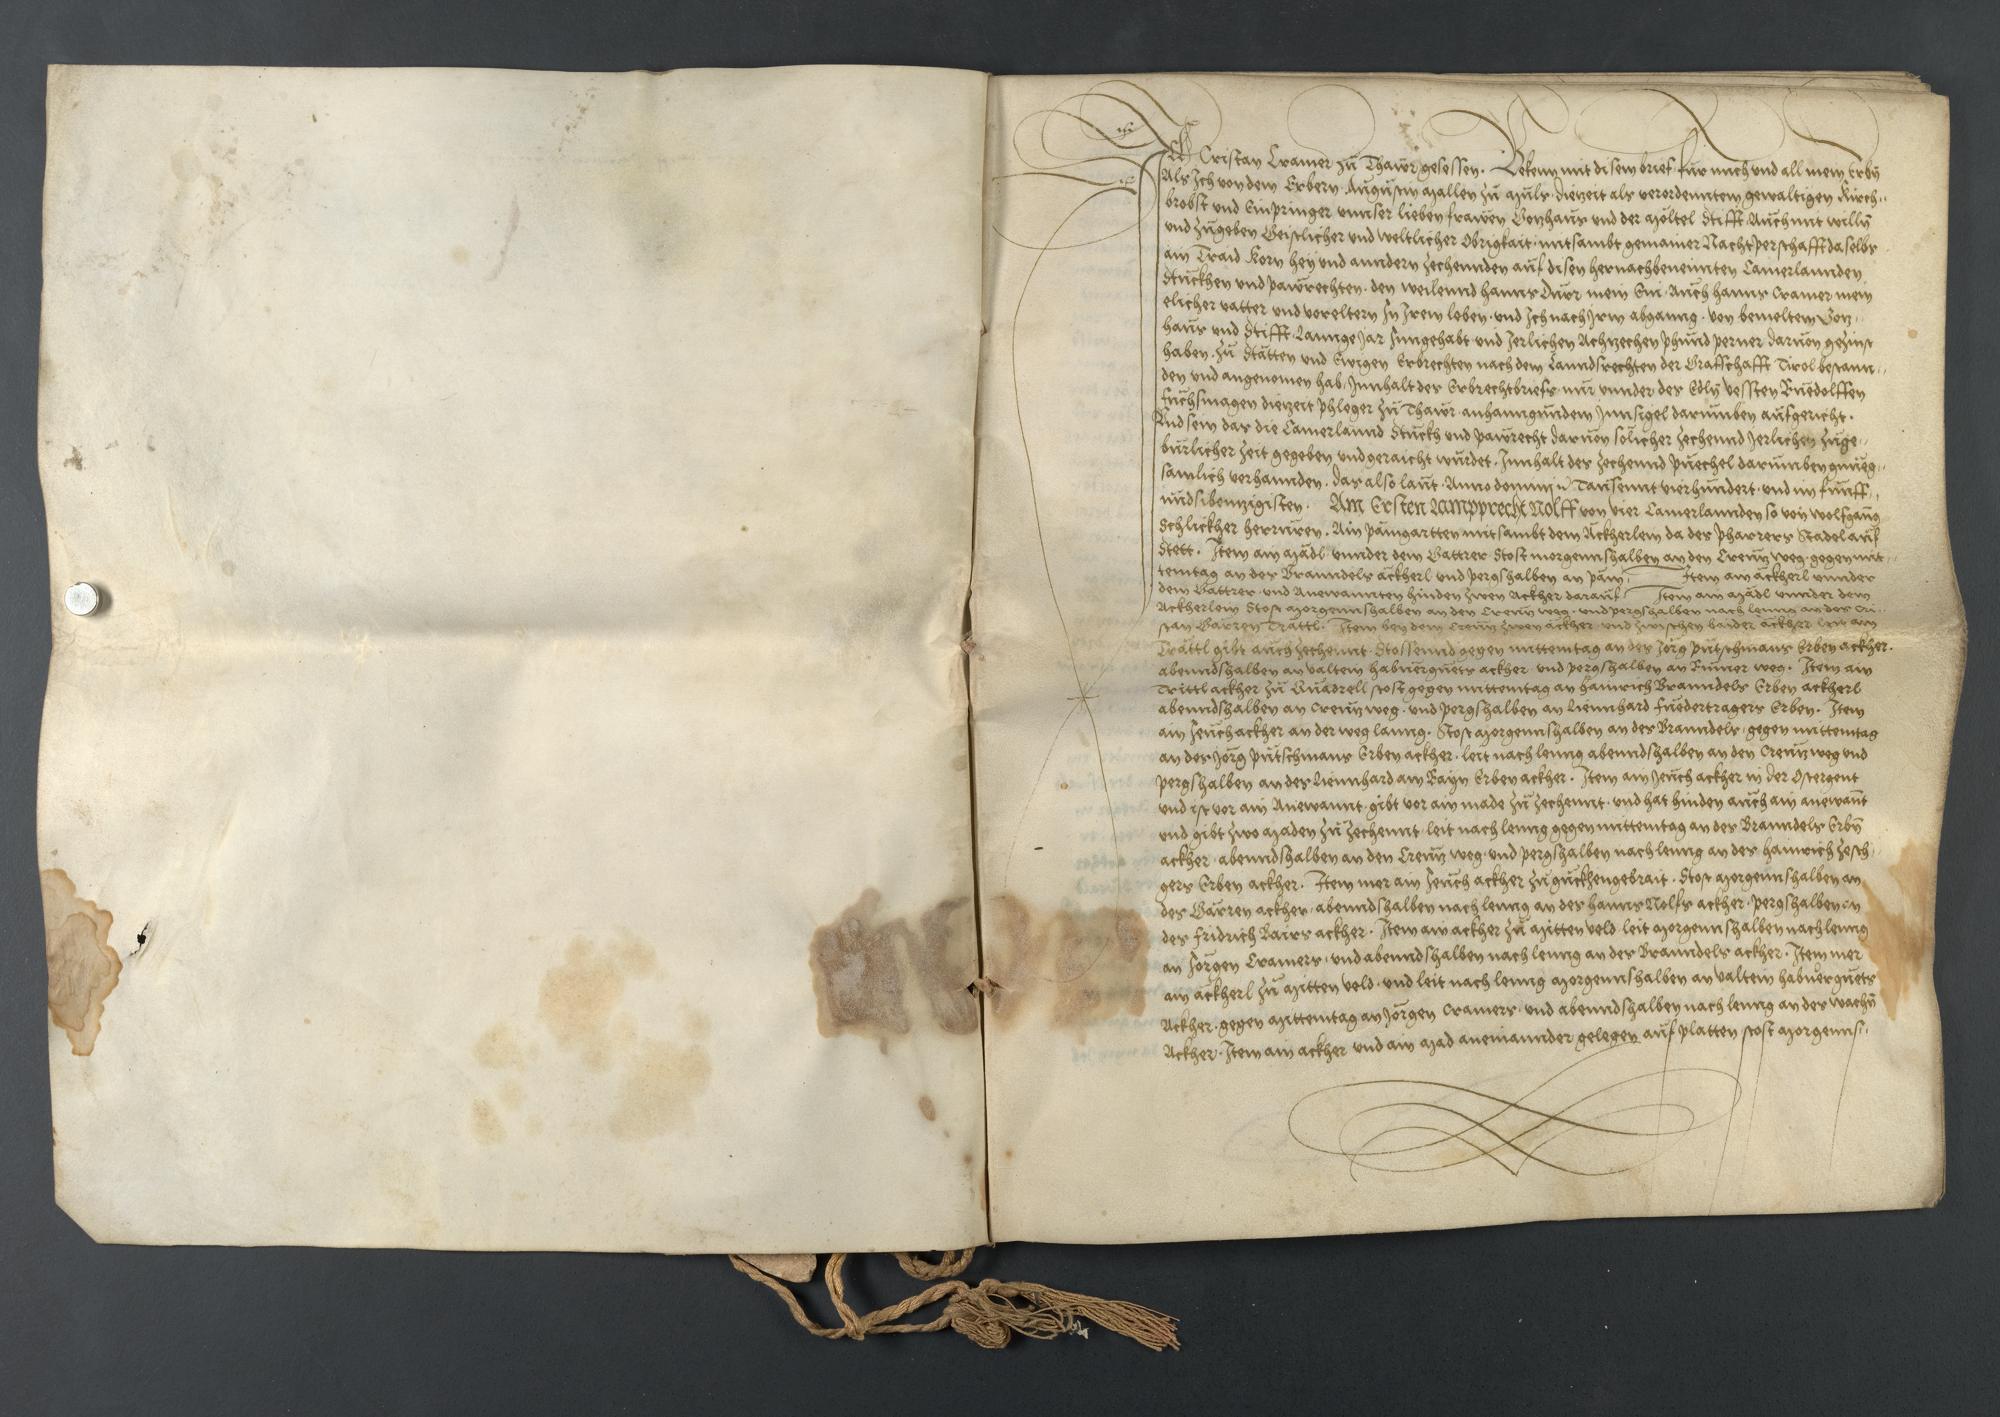 Ich Cristan Cramer zu Thawr gesessen. Bekenn mit disem brief fur mich und all mein Erbn
Als Ich von dem Erbern Augustin Mallen zu Mils dieʒeit als verordenntem gewaltigen Kirch-
brobst und Einpringer unnser lieben frawen Gotzhaus und der Moltel Stifft Auch mit willn
und zugeben Geistlicher und weltlicher Obrigkait mitsambt gemainer Nachtperschafft daselbs
ain Traid Korn hey und anndern zechennden auf disen hernachbenennten Camerlannden
Stuckhen und pawrechten. den weilennd Hanns Durr mein Eni Auch Hanns Cramer mein
elicher vatter und voreltern In Irem leben und Ich nach Irm abganng von bemeltem Gotz-
haus und Stifft Lannge Jar Inngehabt und Jerlichen Achtzechen phund perner daruon gezinst
haben. Zu Stätten und Ewigen Erbrechten nach dem Lanndsrechten der Grafschafft Tirol bestann-
den und angenomen hab Innhalt des Erbrechtbriefs mir unnder des Edln vessten Ruedolffen
Fuchsmagen dieʒeit phleger zu Thawr anhanngundem Innsigel darumben aufgericht.
Und sein das die Camerlannd Stuckh und pawrecht daruon solicher zechennd Jerlichen zuge-
burlicher zeit gegeben und geraicht wurdet. Innhalt des zechennd puechel darumben gnueg-
samlich verhannden. das also laut. Anno domini Tausennt vierhundert und im funff-
undsibenzigisten. Am Ersten Lampprecht Nolff von vier Camerlannden so von wolfgang
Schlickher herruren. Ain pamgartten mitsambt dem Ackherlein da des pharrers Stadel auf
stett. Item ain Mädl unnder dem Gattrer Stost morgennshalben an den Creutz weg gegen mit-
temtag an des Branndels äckherl und pergshalben an pam Item ain äckherl unnder
dem Gattrer und Anewannten hinden zwen Ackher darauf Item ain Mädl unnder dem
Ackherlein Stost Morgennshalben an den Creutz weg und pergshalben nach lenng an des Cri-
stan Garren Trättl. Item bey dem Creutz zwen äckher und zwischen baider äckherr leit ain
Trättl gibt auch zechennt Stossennd gegen mittemtag an des Jörg putschmans Erben ackher.
abenndshalben an valtein habnerguets ackher und pergshalben an Rumer weg. Item ain
Trittl ackher zu Quadrell stost gegen mittemtag an hainrich Branndels Erben ackherl
abenndshalben an Creutz weg und pergshalben an Liennhard Fuedertragers Erben. Item
ain Jeuch ackher an der weg lanng. Stost Morgennshalben an des Branndels gegen mittemtag
an des Jorg Putschmans Erben ackher leit nach lenng abenndshalben an den Creutz weg und
pergshalben an des Liennhard am Rayn Erben ackher. Item ain Jeuch ackher in der Ostergent
und ist vor ain Anewannt gibt vor ain made zu zechennt und hat hinden auch ain anewant
und gibt zwo Maden zu zechennt leit nach lenng gegen mittemtag an des Branndels Erbn
ackher abenndshalben an den Creutz weg und pergshalben nach lenng an des hainrich zesch-
gers Erben ackher. Item mer ain Jeuch ackher zu guckhengebrait. Stost Morgennshalben an
des Garren ackher abenndshalben nach lenng an des hanns Nolfs ackher pergshalben an
des Fridrich Bairs ackher. Item ain ackher zu Mitten veld leit Morgennshalben nach lenng
an Jörgen Cramers und abenndshalben nach lenng an des Branndels ackher. Item mer
ain äckherl zu Mitten veld und leit nach lenng Morgennshalben an valtein habnerguets
Ackher gegen Mittemtag an Jörgen Cramers und abenndshalben nach lenng an des wachn
Ackher. Item ain ackher und ain Mad aneinannder gelegen auf platten stost Morgenns-